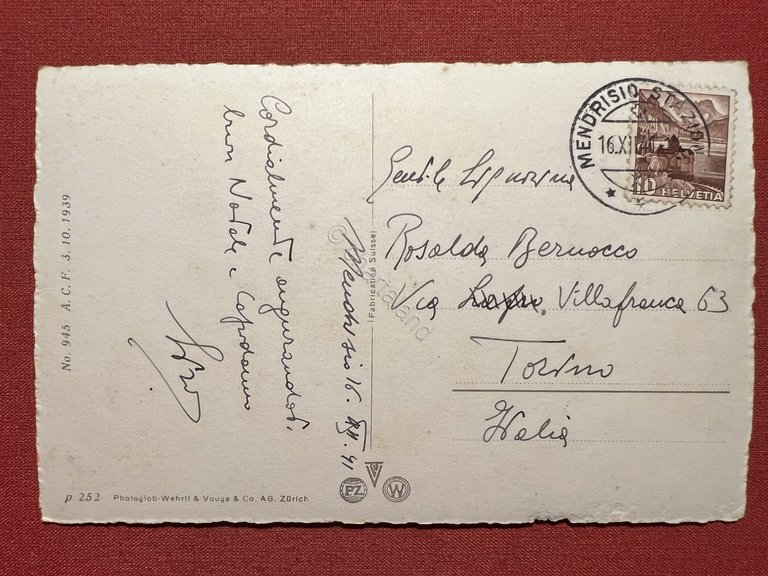 MENDRISIO STAZION
16.XII.41
10
HELVETIA
Cordialmente augurandoti
buon Natale e Capodanno
Mendrisio 16. XII. 41
Gentile Signorina
Rosalda Bernocco
Via Villafranca 63
Torino
Italia
No. 945 A. C. F. 3. 10. 1939
(Fabrication Suisse)
p 252 Photoglob-Wehrli & Vouga & Co. AG. Zürich
PZ
W